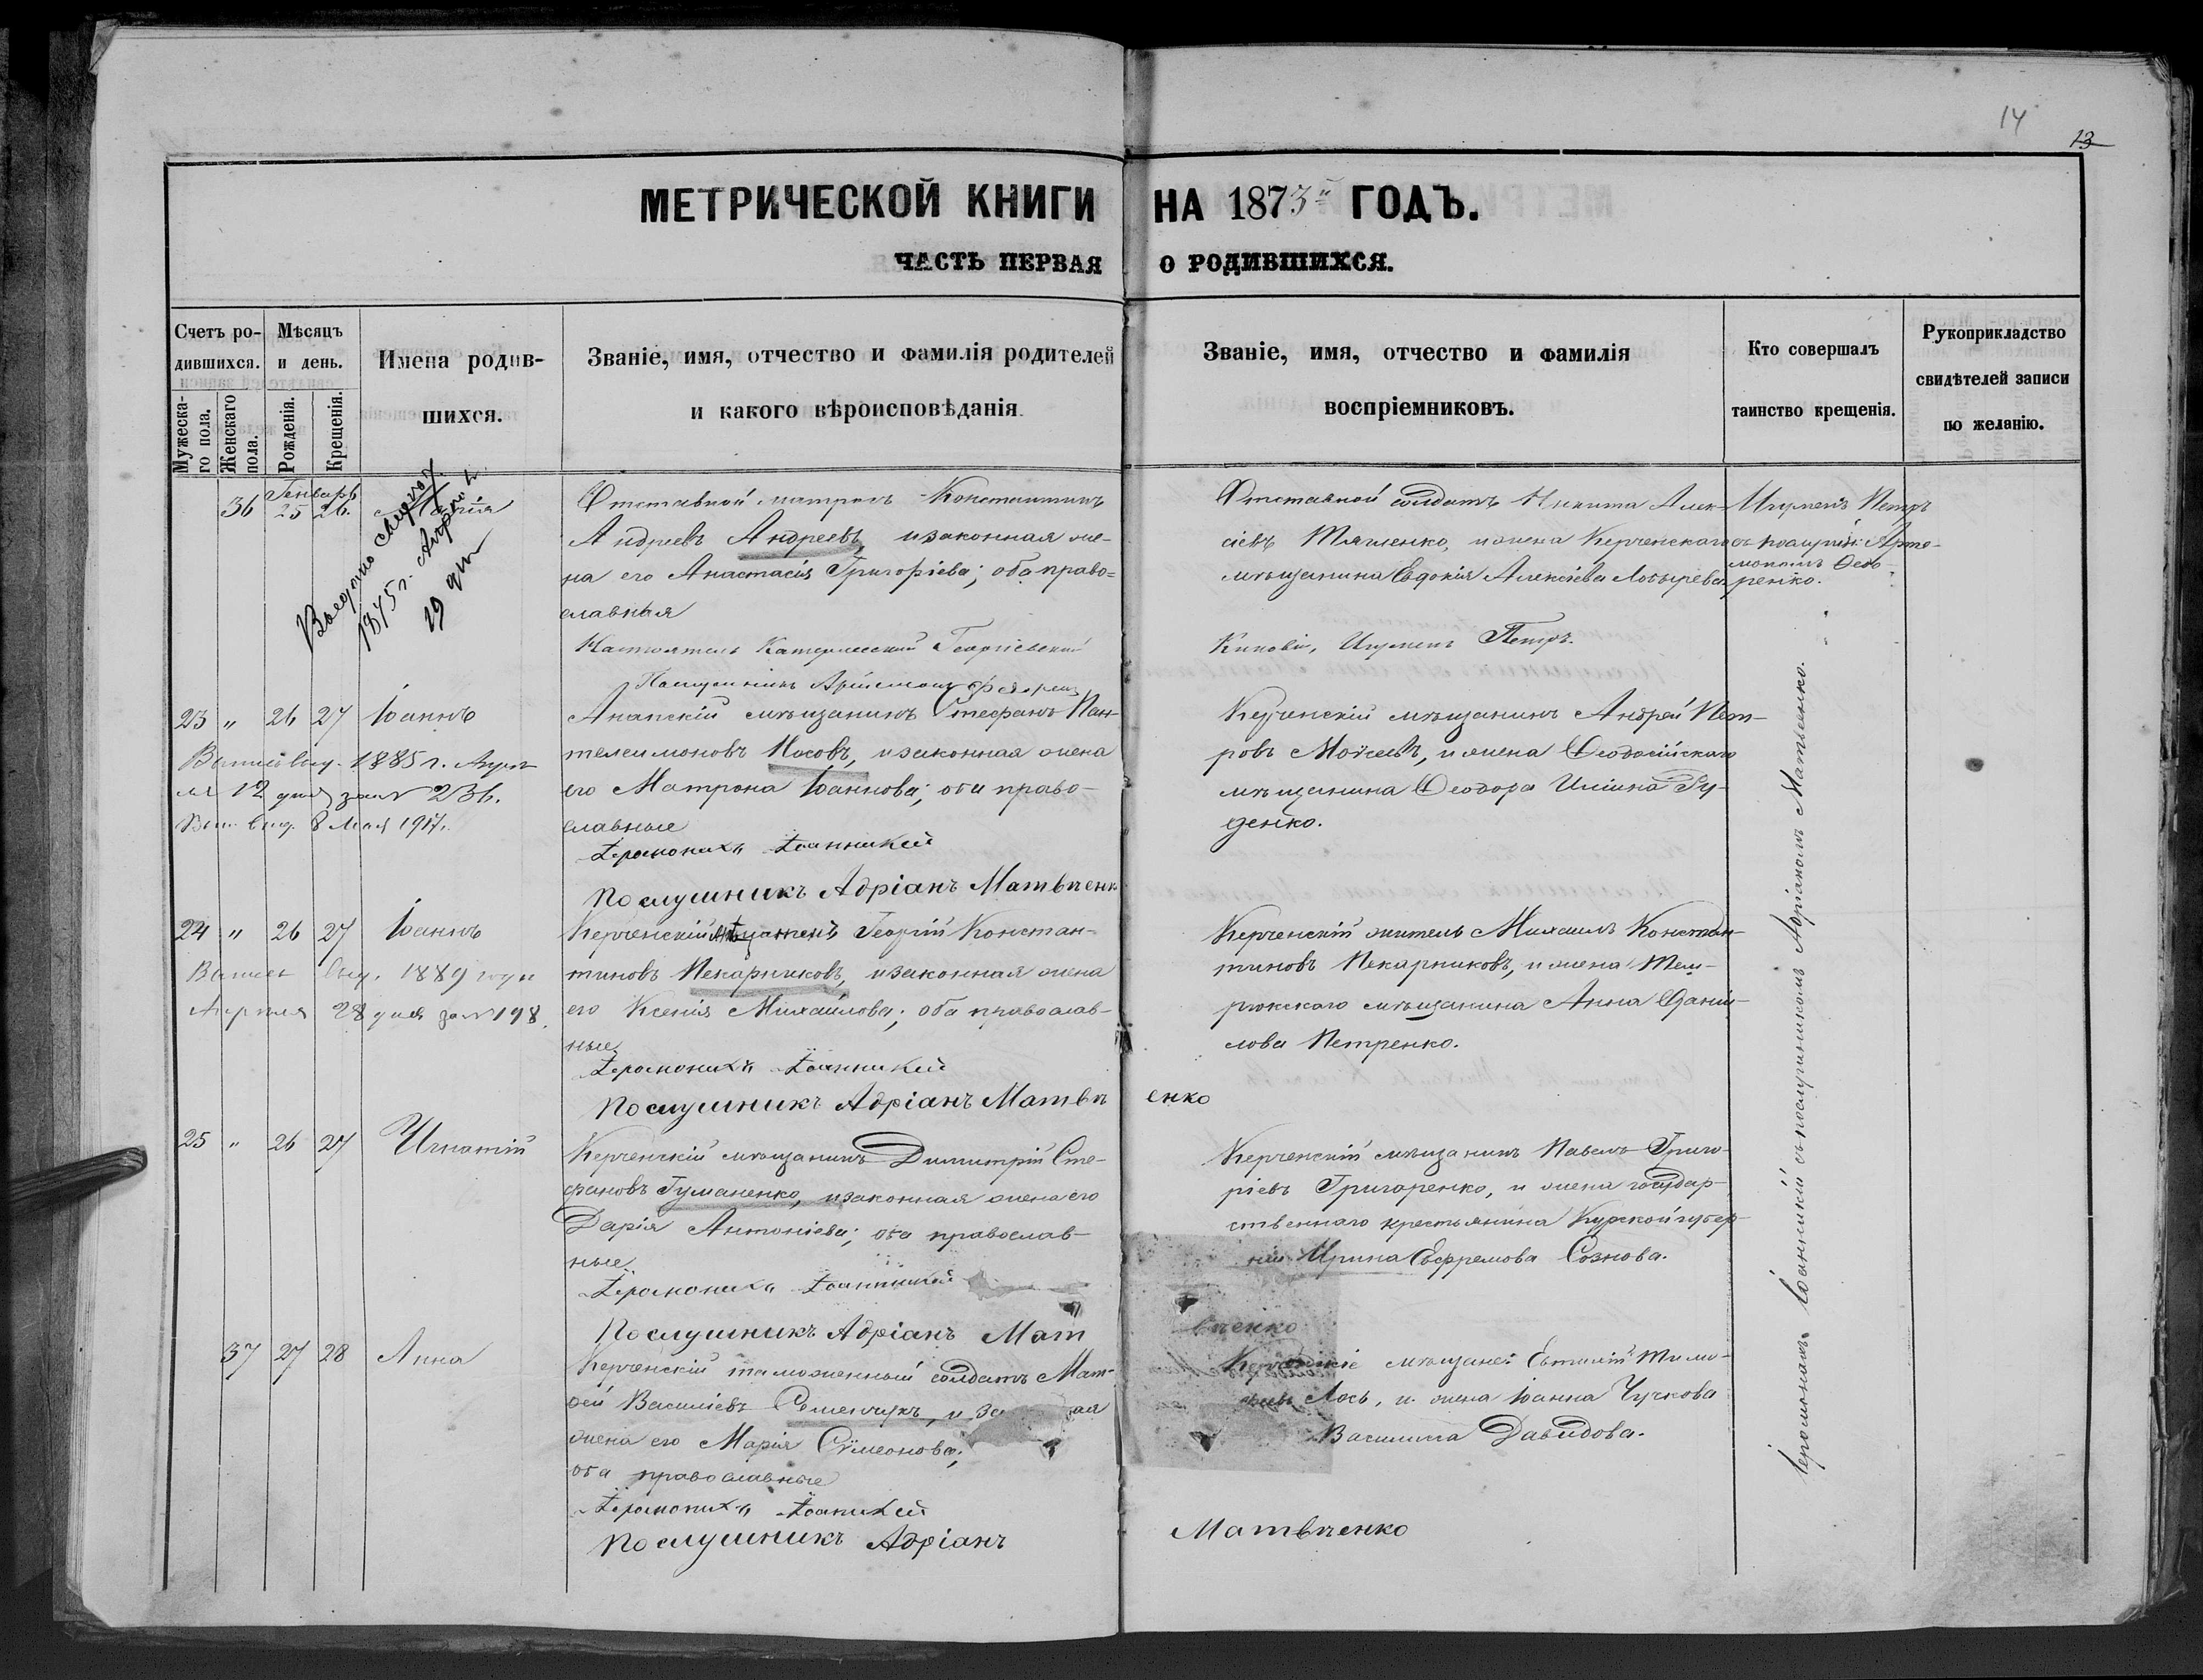 14
13
МЕТРИЧЕСКОЙ КНИГИ НА 1873й ГОДЪ.
ЧАСТЬ ПЕРВАЯ О РОДИВШИХСЯ.
Счетъ ро-
дившихся.
Мужеска-
го пола.
Женскаго
пола.
Мѣсяцъ
и день.
Рожденія.
Крещенія.
Имена родив-
шихся.
Званіе, имя, отчество и фамилія родителей
и какого вѣроисповѣданія.
Званіе, имя, отчество и фамилія
воспріемниковъ.
Кто совершалъ
таинство крещенія.
Рукоприкладство
свидѣтелей записи
по желанію.
Генварь
36 25 26. Марія
19 дня
Отставной матросъ Константинъ
Андреевъ Андреевъ, и законная же-
на его Анастасія Григоріева; оба право-
славныя
Настоятель Катерлесскій Георгіевскій
Послушникъ
Отставной солдатъ Никита Алек-
сіевъ Тяжленко, и жена Керченскаго
мѣщанина Евдокія Алексіева
Киновіи, Игуменъ Петръ.
Игуменъ Петръ
съ послушн. Арте-
мономъ Ѳедо-
ренко.
23 " 26 27 Іоаннъ
1885 г. Апре
ля 12 дня за № 236.
8 Мая 1917г.
Анапскій мѣщанинъ Стефанъ Пан-
телеимоновъ Носовъ, и законная жена
его Матрона Іоаннова; оба право-
славные
Іеромонахъ Іоанникій
Послушникъ Адріанъ Матвѣенк
Керченскій мѣщанинъ Андрей Пет-
ровъ Моѵсеевъ, и жена Ѳеодосійскаго
мѣщанина Ѳеодора Иліина Гу-
денко.
24 " 26 27 Іоаннъ
1889 года
Апреля 28 дня за № 198.
Керченскій мѣщанинъ Георгій Констан-
тиновъ Пекарниковъ, и законная жена
его Ксенія Михаилова; оба православ-
ные
Іеромонахъ Іоанникій
Послушникъ Адріанъ Матвѣенко
Керченскій житель Михаилъ Констан-
тиновъ Пекарниковъ, и жена Тем-
рюкскаго мѣщанина Анна Даніи-
лова Петренко.
25 " 26 27 Игнатій
Керченскій мѣщанинъ Димитрій Сте-
фановъ Гуманенко, и законная жена его
Дарія Антоніева; оба православ-
ные
Іеромонахъ Іоанникій
Послушникъ Адріанъ Матвѣенко
Керченскій мѣщанинъ Павелъ Григо-
ріевъ Григоренко, и жена государ-
ственнаго крестьянина Курской губер-
ніи Ирина Евфремова Сознова.
37 27 28 Анна
Керченскій таможенный солдатъ Мат-
ѳей Василіевъ Семенчукъ, и за ая
жена его Марія Сѵмеонова;
оба православные
Іеромонахъ Іоаникій
Послушникъ Адріанъ Матвѣенко
Керченскіе мѣщане: Евтихій Тимо-
ѳеевъ Лось, и жена Іоанна Чучкова
Василисса Давидова.
Іеромонахъ Іоанникій съ послушникомъ Адріаномъ Матвеенко.